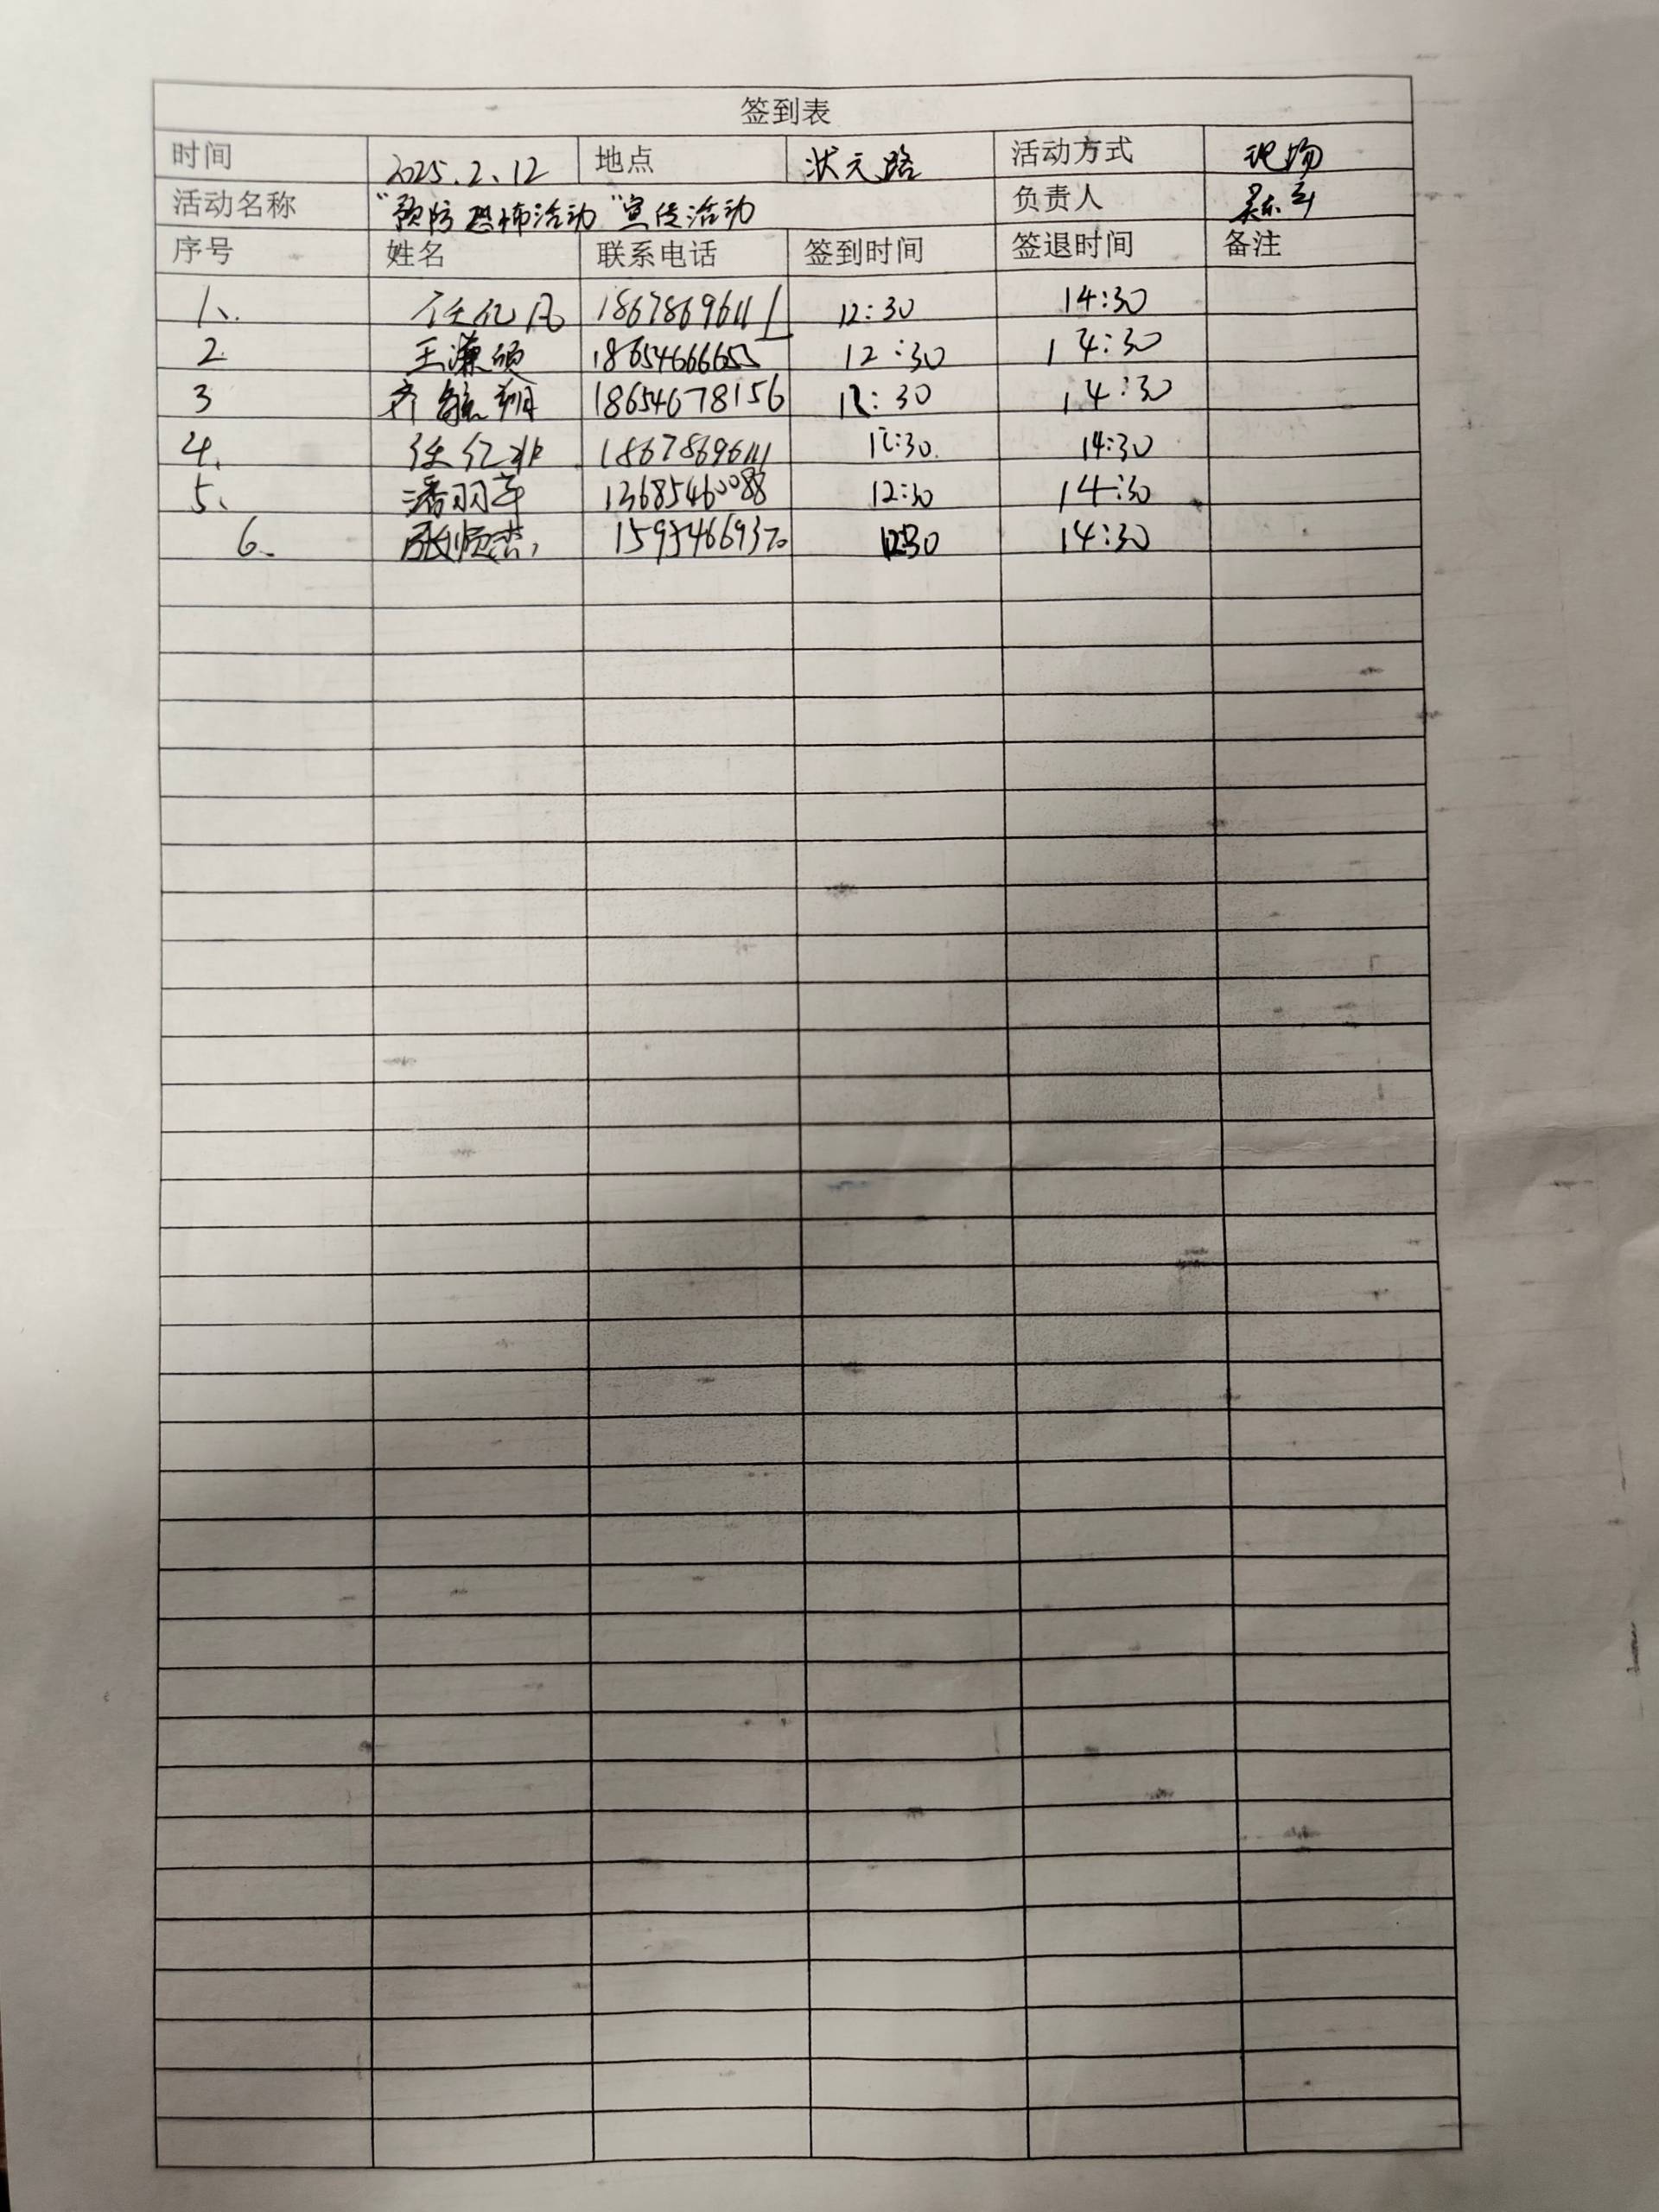 签到表
时间 2025.2.12 地点 状元路 活动方式 现场
活动名称 “预防恐怖活动”宣传活动 负责人
序号 姓名 联系电话 签到时间 签退时间 备注
1、 任亿凡 18678696111 12:30 14:30
2 王濂硕 18654666655 12:30 14:30
3 齐毓翔 18654678156 12:30 14:30
4、 任亿非 18678696111 12:30 14:30
5、 潘羽 13685460088 12:30 14:30
6、 张顺 15954669370 12:30 14:30